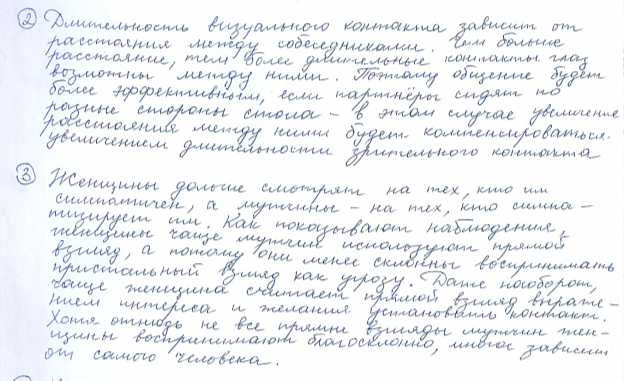 ② Длительность визуального контакта зависит от
расстояния между собеседниками. Чем больше
расстояние, тем более длительные контакты глаз
возможны между ними. Потому общение будет
более эффективным, если партнёры сидят по
разные стороны стола – в этом случае увеличение
расстояния между ними будет компенсироваться
увеличением длительности зрительного контакта
③ Женщины дольше смотрят на тех, кто им
симпатичен, а мужчины – на тех, кто симпа-
тизирует им. Как показывают наблюдения,
женщины чаще мужчин используют прямой
взгляд, а потому они менее склонны воспринимать
пристальный взгляд как угрозу. Даже наоборот,
чаще женщина считает прямой взгляд выраже-
нием интереса и желания установить контакт.
Хотя отнюдь не все прямые взгляды мужчин жен-
щины воспринимают благосклонно, многое зависит
от самого человека.